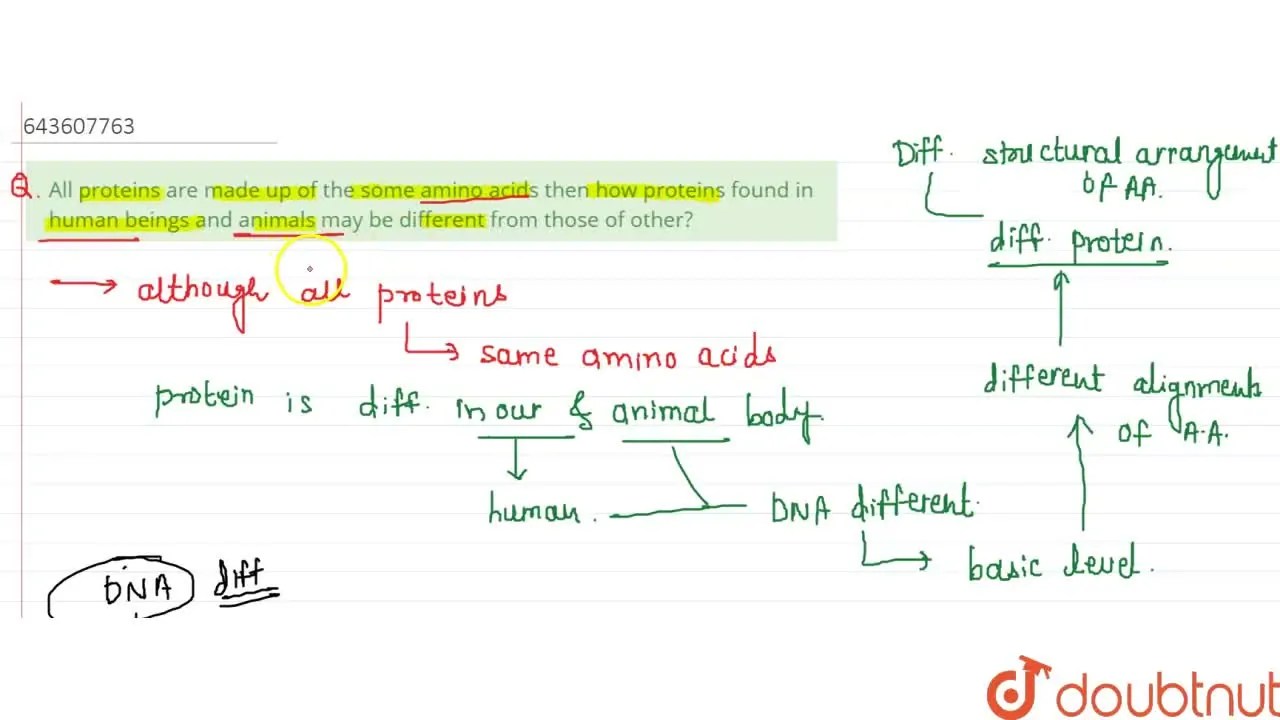 643607763
Q. All proteins are made up of the some amino acids then how proteins found in
human beings and animals may be different from those of other?
although all proteins
same amino acids
protein is diff. in our & animal body.
human.
DNA different.
basic level.
different alignments
of A.A.
diff. protein.
Diff. structural arrangement
of AA.
DNA diff
doubtnut